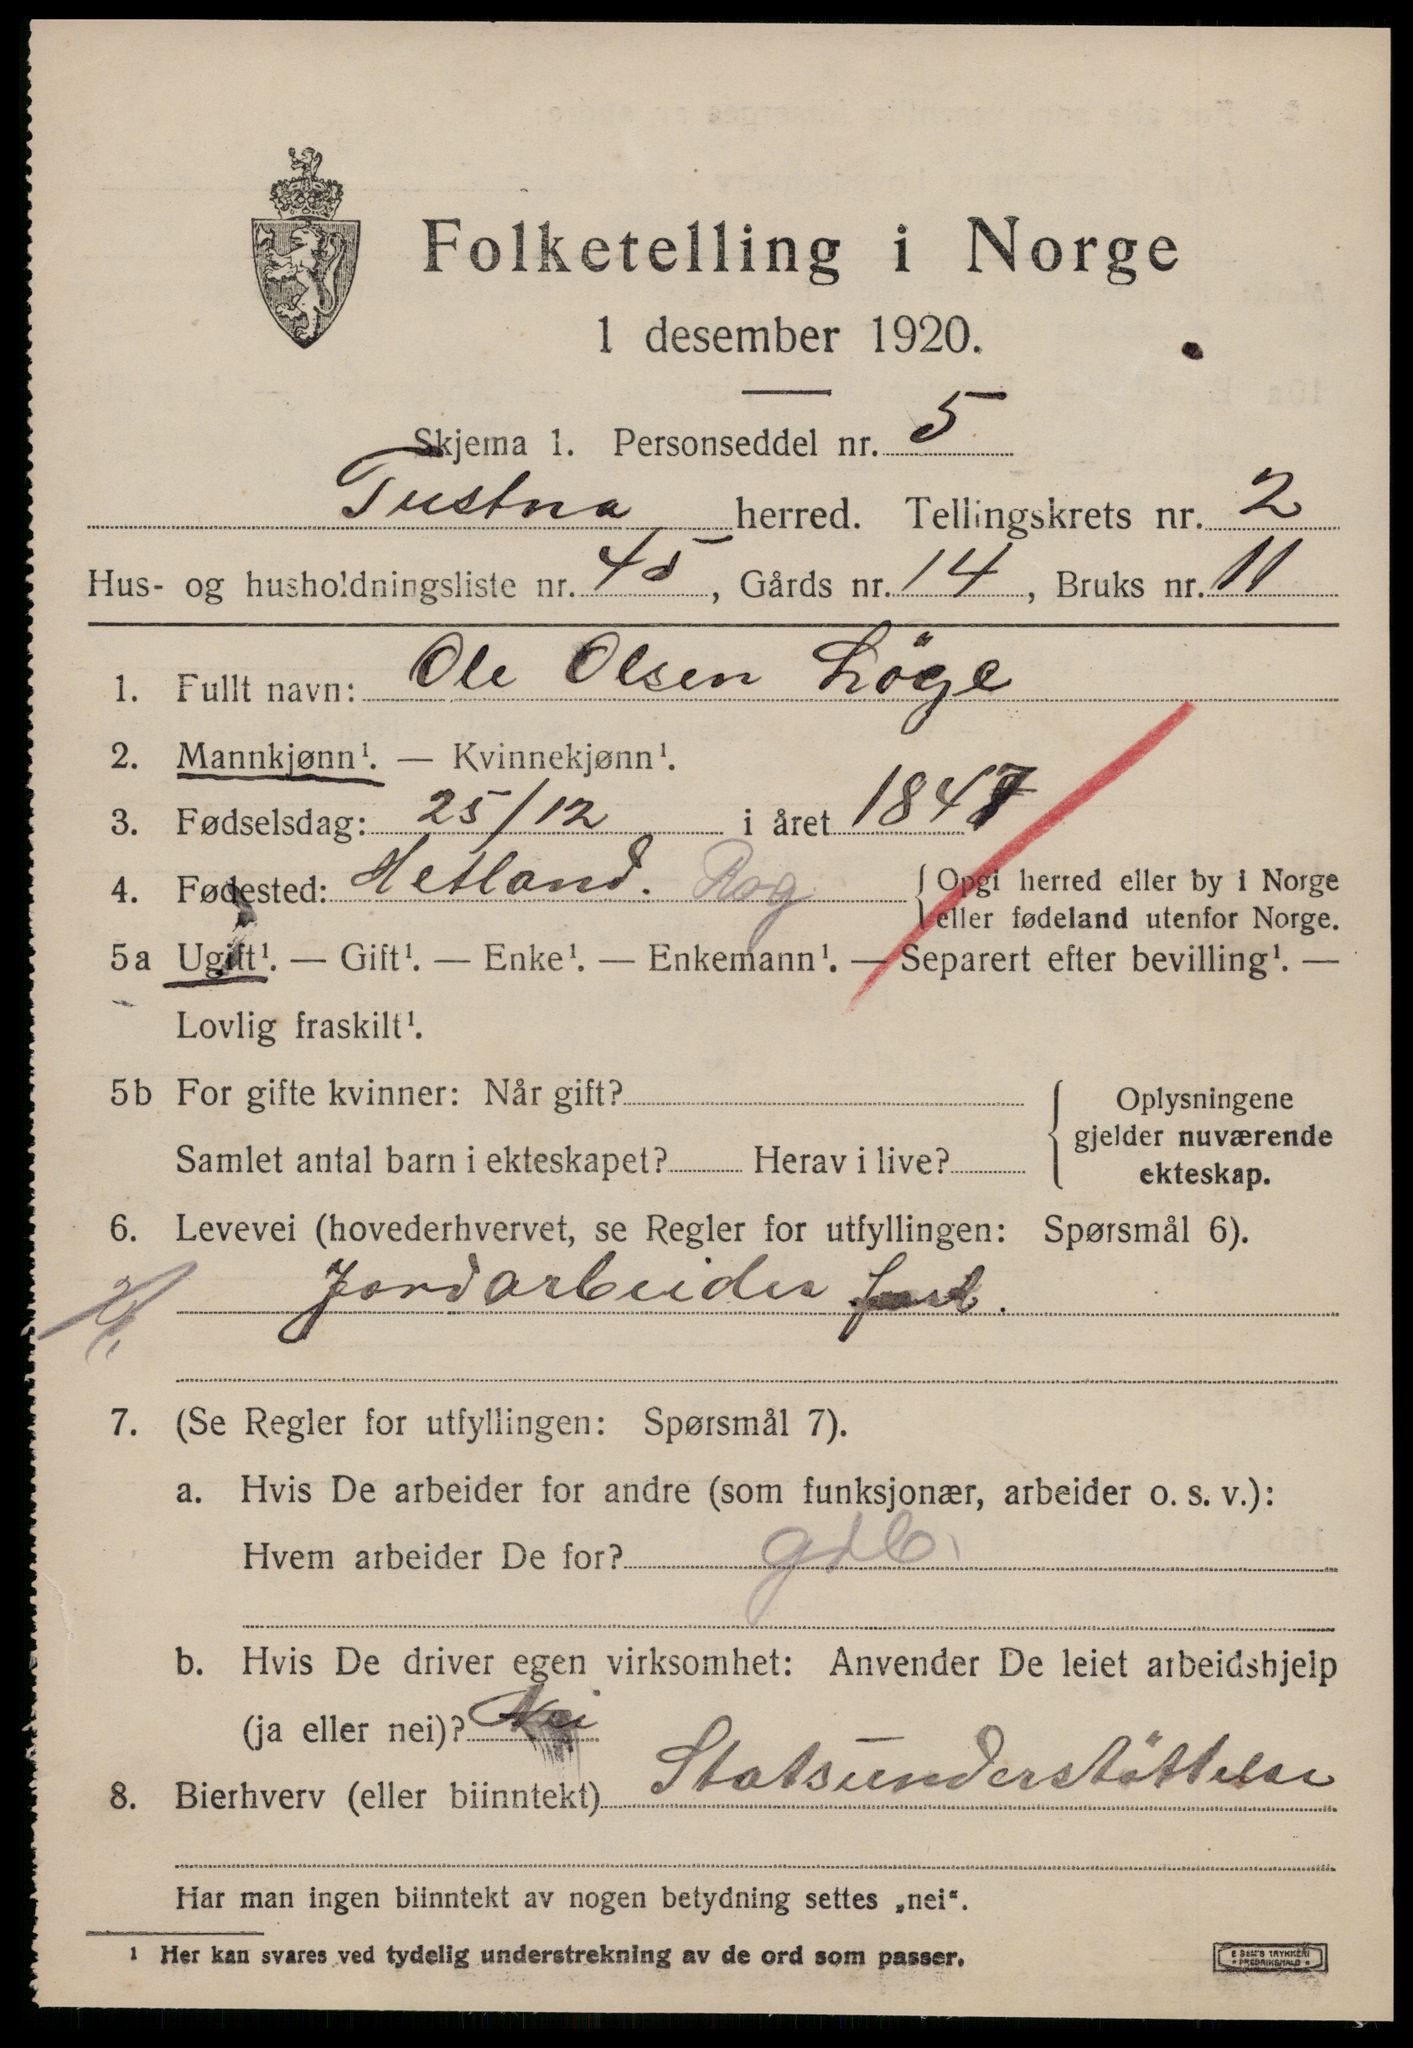 Folketelling i Norge
1 desember 1920.
Skjema 1. Personseddel nr. 5
Tustna herred. Tellingskrets nr. 2
Hus- og husholdningsliste nr. 45, Gårds nr. 14, Bruks nr. 11
1. Fullt navn: Ole Olsen Löge
2. Mannkjønn¹. — Kvinnekjønn¹.
3. Fødselsdag: 25/12 i året 1847
4. Fødested: Hetland. Rog {Opgi herred eller by i Norge
eller fødeland utenfor Norge.
5a Ugift¹. — Gift¹. — Enke¹. — Enkemann¹. — Separert efter bevilling¹. —
Lovlig fraskilt¹.
5b For gifte kvinner: Når gift?
Samlet antal barn i ekteskapet? Herav i live?
Oplysningene
gjelder nuværende
ekteskap.
6. Levevei (hovederhvervet, se Regler for utfyllingen: Spørsmål 6).
Jordarbeider
7. (Se Regler for utfyllingen: Spørsmål 7).
a. Hvis De arbeider for andre (som funksjonær, arbeider o. s. v.):
Hvem arbeider De for?
b. Hvis De driver egen virksomhet: Anvender De leiet arbeidshjelp
(ja eller nei)? Nei
8. Bierhverv (eller biinntekt) Statsunderstöttelse
Har man ingen biinntekt av nogen betydning settes „nei“.
1 Her kan svares ved tydelig understrekning av de ord som passer.